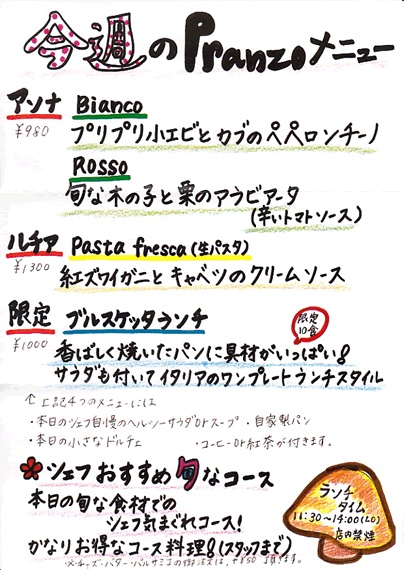 今週のPranzoメニュー
アソナ Bianco
¥980
プリプリ小エビとカブのペペロンチーノ
Rosso
旬な木の子と栗のアラビアータ
(辛いトマトソース)
ルチア Pasta fresca (生パスタ)
¥1300
紅ズワイガニとキャベツのクリームソース
限定 ブルスケッタランチ
¥1000
限定
10食
香ばしく焼いたパンに具材がいっぱい!
サラダも付いてイタリアのワンプレートランチスタイル
↑上記4つのメニューには
・本日のシェフ自慢のヘルシーサラダorスープ ・自家製パン
・本日の小さなドルチェ ・コーヒーor紅茶が付きます。
シェフおすすめ旬なコース
本日の旬な食材での
シェフ気まぐれコース!
かなりお得なコース料理!(スタッフまで)
※チーズ・バター・バルサミコの御注文は、+¥50頂きます。
ランチ
タイム
11:30〜14:00(LO)
店内禁煙